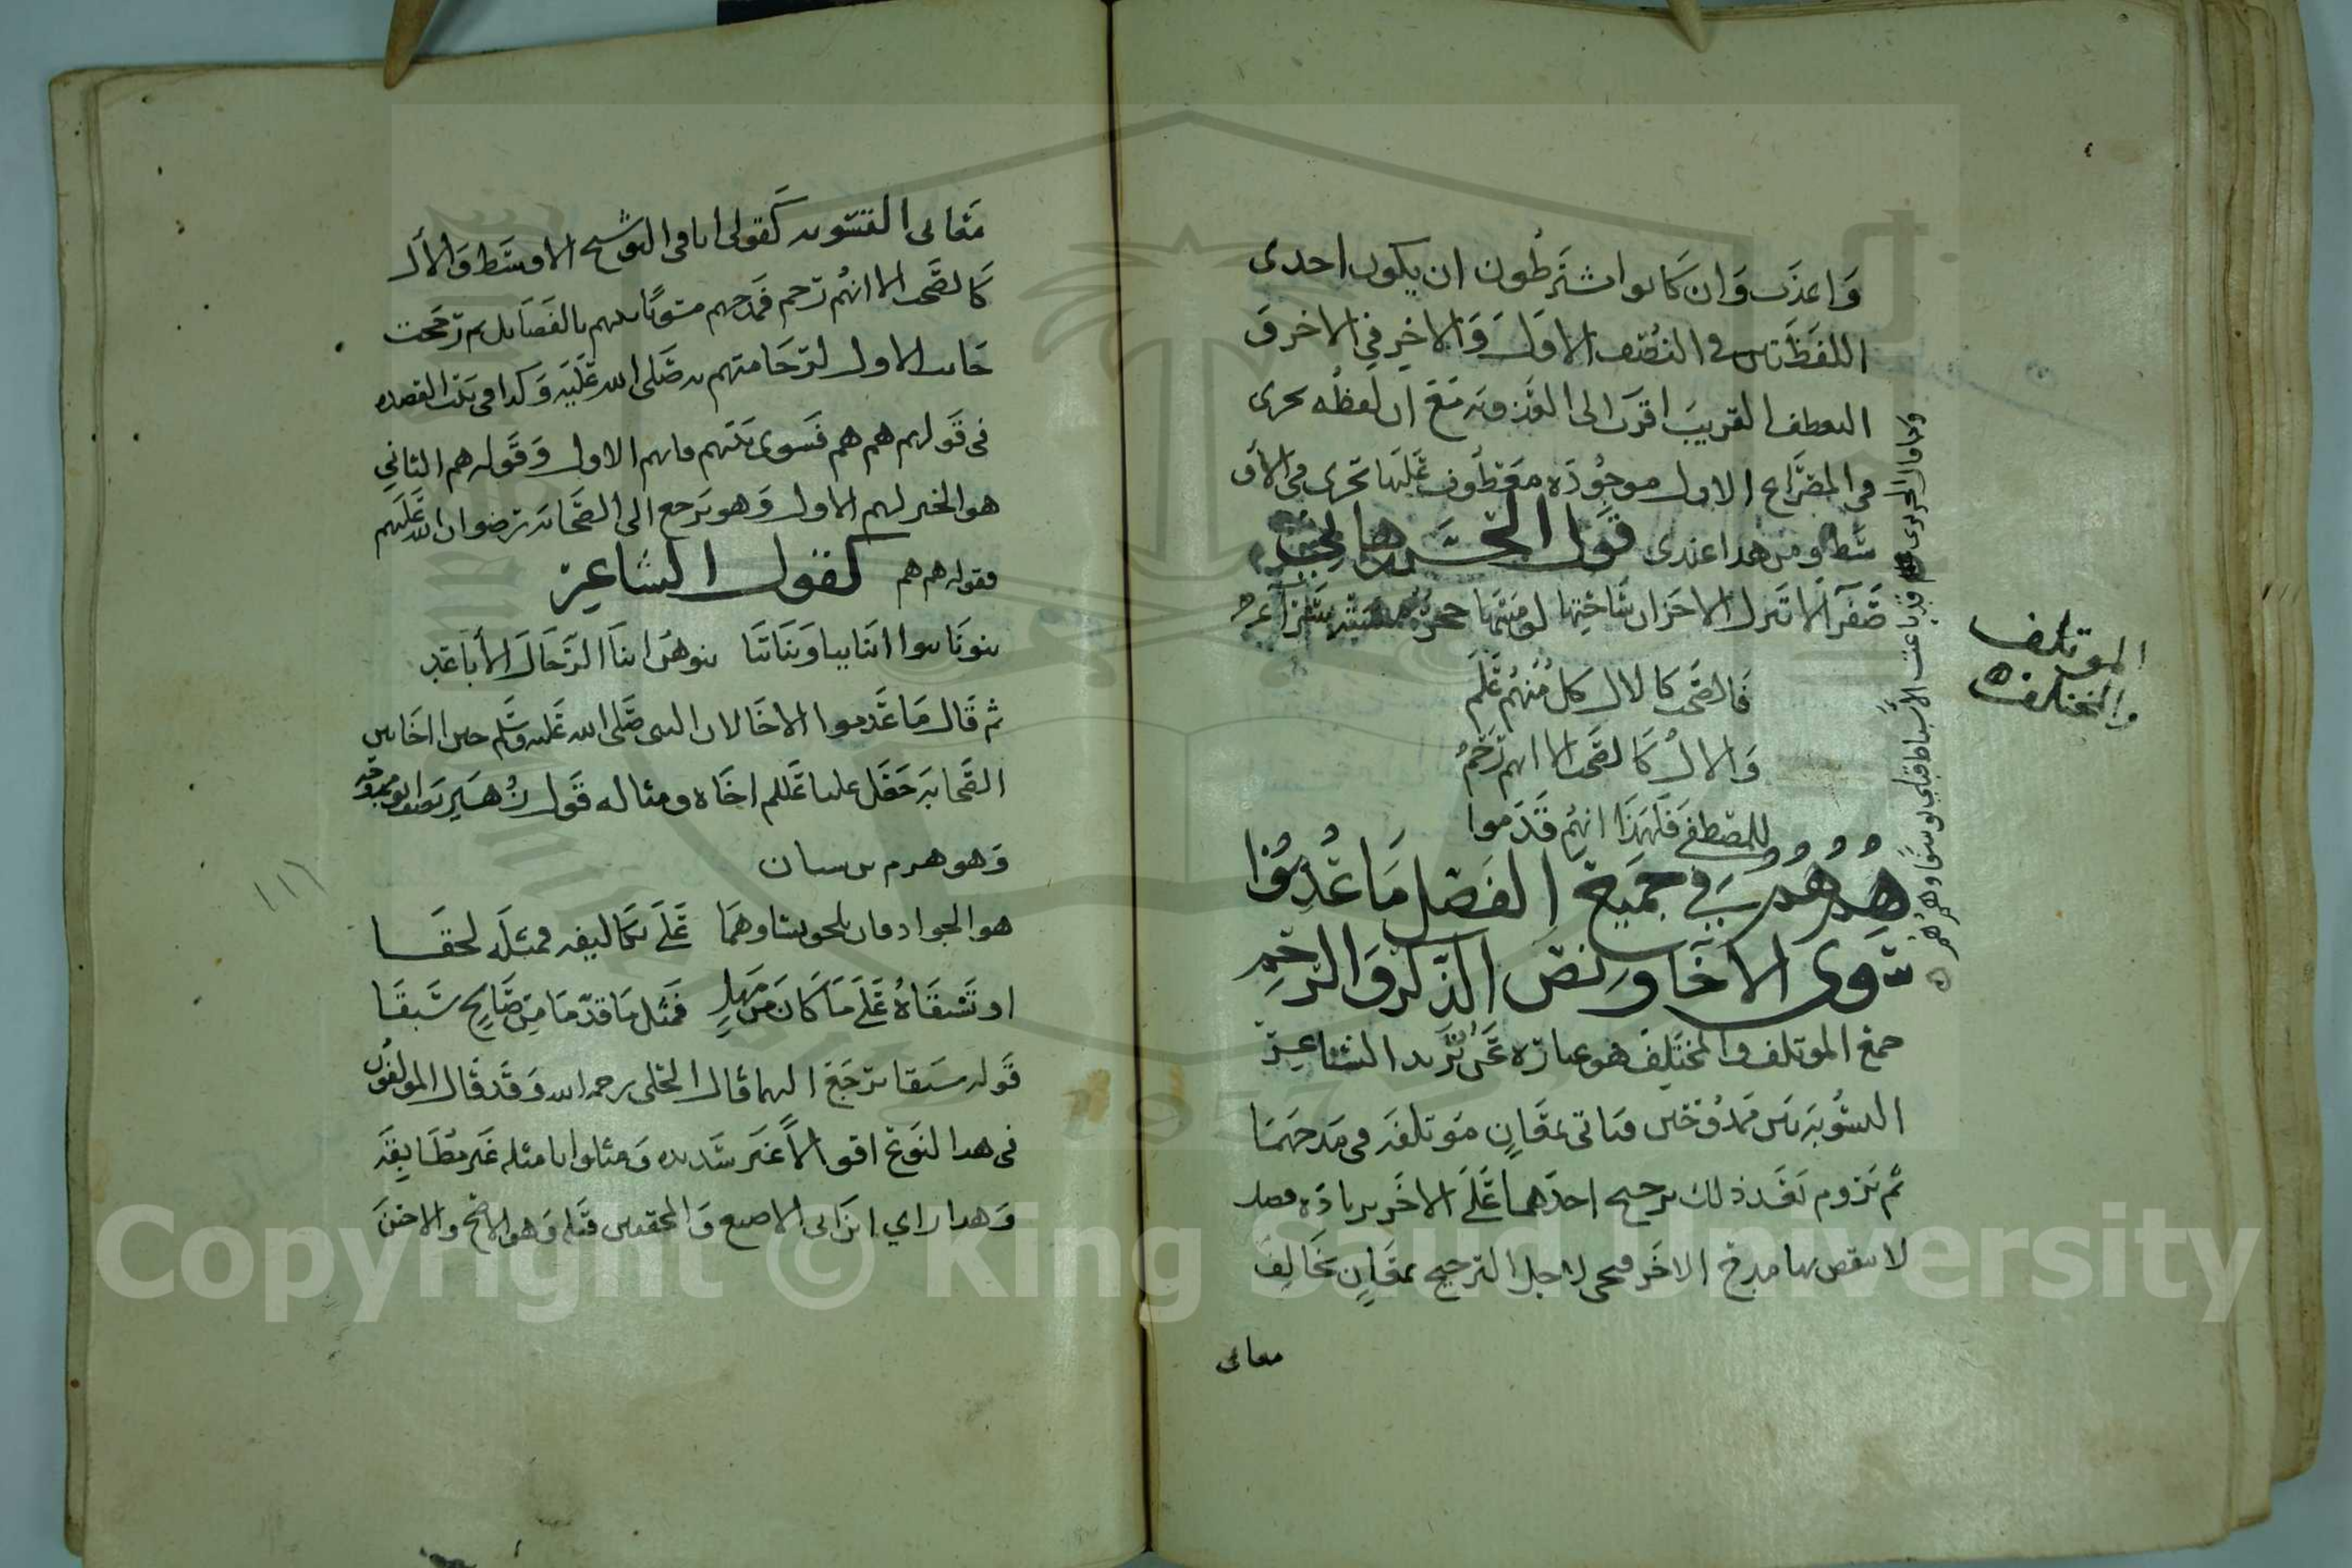 واعذب وان كانوا مشترطون ان يكون احدى
اللفظتين في النصف الاول والاخر في الاخر و
العطف القريب اقرب الى مع ان لفظه يجرى
في المصراع الاول موجوده معطوف عليها تجرى في
ومن هذا عندى قول الحسن بن هاني
صفرآ لا تنزل الاحزان ساحتها لو مسها حجر مسته سرآ
فالصحب كالال كل منهم علم
والال كالصحب الا انهم رحم
للمصطفى فلهذا انهم قدموا
هم هم في جميع الفضل ما عدموا
سوى الاخا ونص الذكر والرحم
جمع الموتلف والمختلف هو عباره عن ان يريد الشاعر
التسويه بين ممدوحين فياتي بمعان موتلفه في مدحهما
ثم يروم بعد ذلك ترجيح احدهما على الاخر بزياده فضل
لا ينقص بها مدح الاخر فيجي لاجل الترجيح بمعان تخالف
معاني
الموتلف
والمختلف
معاني التسويه كقولي انا في التوشيح الاوسط والال
كالصحب الا انهم رحم فمدحهم مسويا بينهم بالفضايل ثم رجحت
جانب الاول لرحامتهم به صلى الله عليه وكذا في بيت القصيده
في قولهم هم هم فسوى بينهم فانهم الاول وقوله هم الثاني
هو الخبر لهم الاول وهو يرجع الى الصحابه رضوان الله عليهم
فقوله هم هم كقول الشاعر
بنونا بنوا ابنايبا وبناتنا بنوهن ابنا الرجال الاباعد
ثم قال ما عدموا الا الاخا لان النبي صلى الله عليه وسلم حين اخا بين
الصحابه جعل عليا عللم اخاه ومثاله قول زهير
وهو هرم بن سنان
هو الجواد فان يلحق بشاوهما على تكاليفه فمثله لحقا
او تسبقاه على ما كان من مهل فمثل ما قدما من صالح سبقا
قوله سبقا يرجع اليهما قال الحلي رحمه الله وقد قال المولفون
في هذا النوع اقوالا غير سديده ومثلوا بامثله غير مطابقه
وهذا راي ابن ابي الاصبع والمحققين قبله وهو الاصح والاحسن